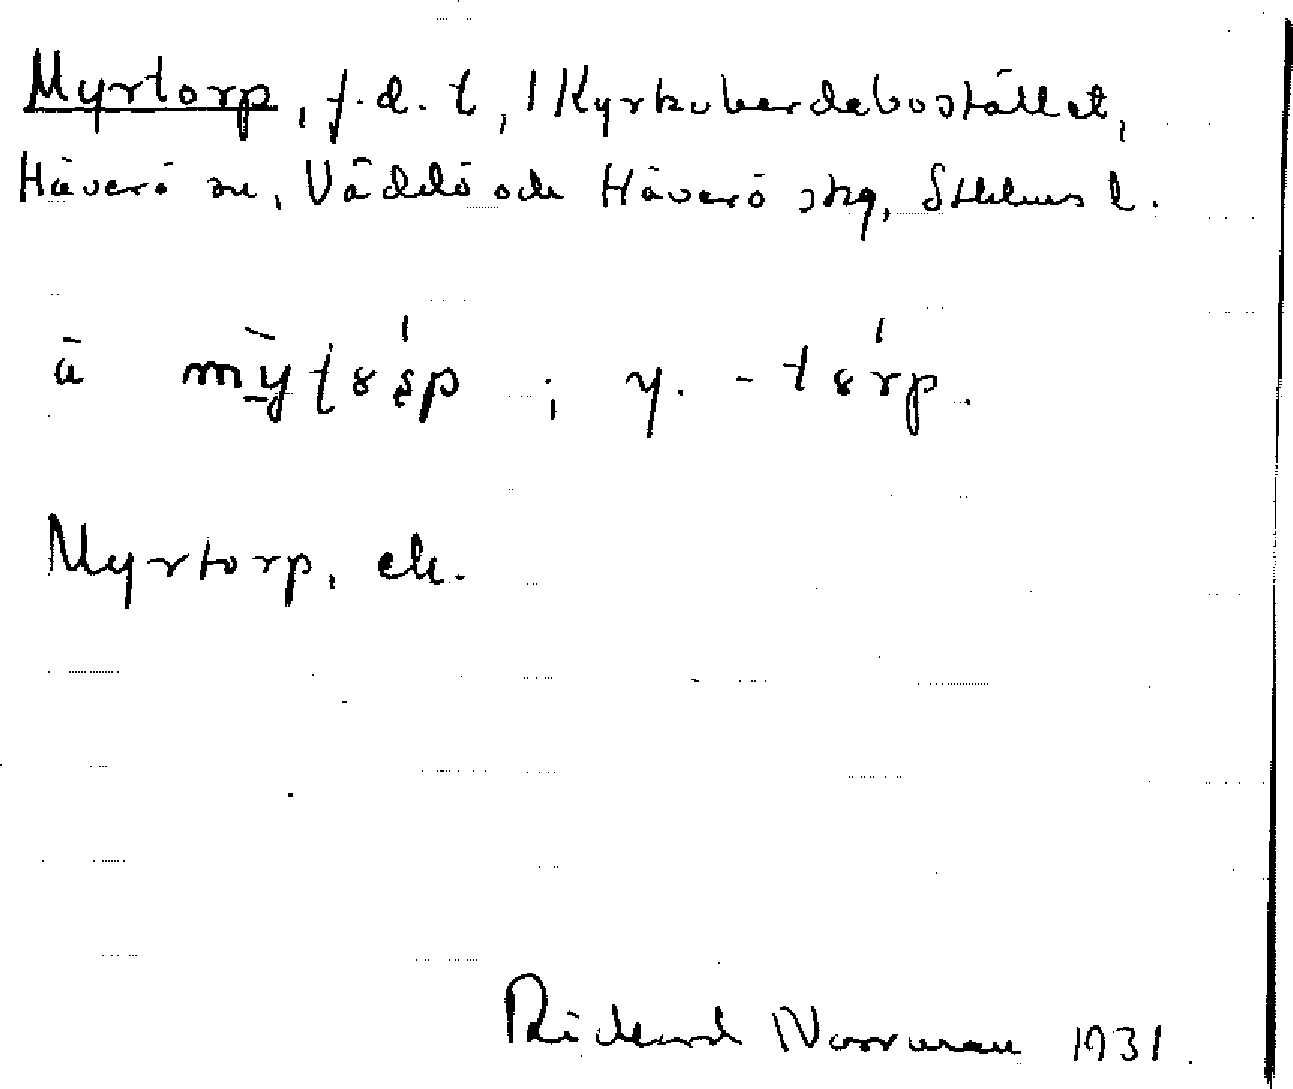 Myrtorp, f.d. t, /Kyrkoherdebostället,
Häverö sn, Väddö och Häverö skg, Sthlms l.
; y. -
Myrtorp, ek.
Rickard Norrman 1931.